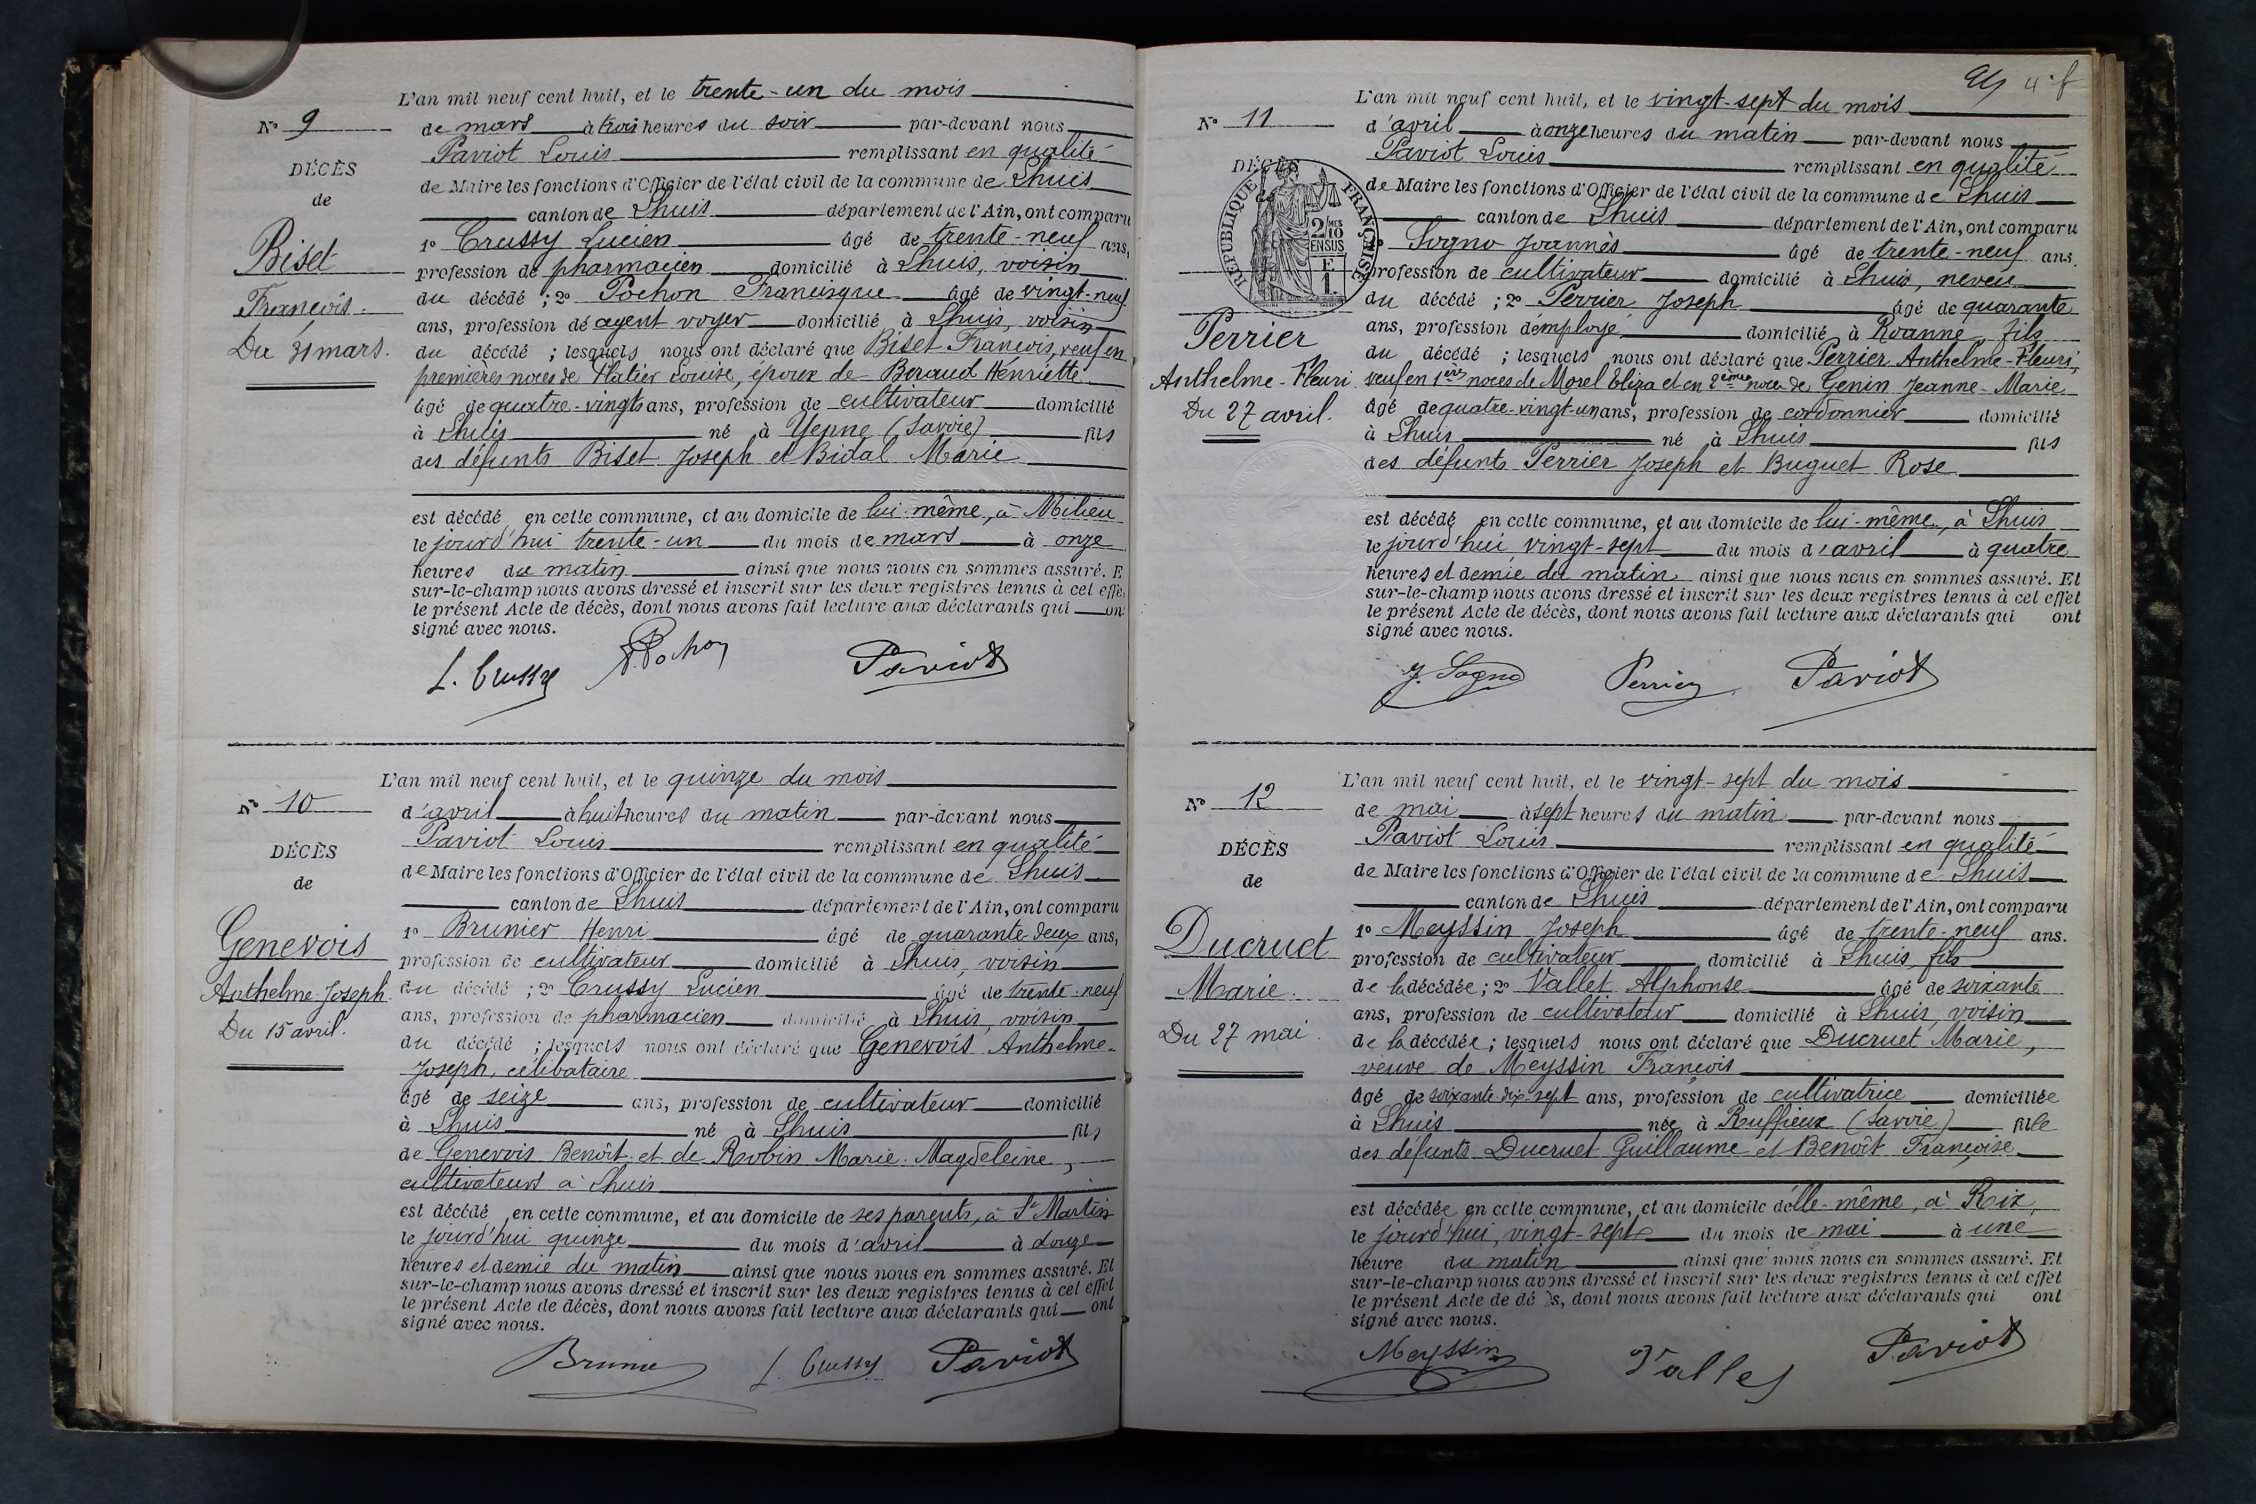 L'an mil neuf cent huit, et le trente-un du mois
N° 9
de mars à trois heures du soir par-devant nous
Paviot Louis remplissant en qualité
DÉCÈS
de Maire les fonctions d'Officier de l'état civil de la commune de Lhuis
de
canton de Lhuis département de l'Ain, ont comparu
1° Crussy Lucien âgé de trente-neuf ans,
Biset
profession de pharmacien domicilié à Lhuis, voisin
du décédé ; 2° Pochon Francisque âgé de vingt-neuf
François.
ans, profession d'agent voyer domicilié à Lhuis, voisin
Du 31 mars.
du décédé ; lesquels nous ont déclaré que Biset François, veuf en
premières noces de Platier Louise, époux de Beraud Henriette
âgé de quatre-vingts ans, profession de cultivateur domicilié
à Lhuis né à Yenne (Savoie) fils
des défunts Biset Joseph et Bidal Marie
est décédé en cette commune, et au domicile de lui-même, à Milieu
le jourd'hui trente-un du mois de mars à onze
heures du matin ainsi que nous nous en sommes assuré. E
sur-le-champ nous avons dressé et inscrit sur les deux registres tenus à cet effe
le présent Acte de décès, dont nous avons fait lecture aux déclarants qui on
signé avec nous.
L. Crussy Pochon Paviot
L'an mil neuf cent huit, et le quinze du mois
N° 10
d'avril à huit heures du matin par-devant nous
Paviot Louis remplissant en qualité
DÉCÈS
de Maire les fonctions d'Officier de l'état civil de la commune de Lhuis
de
canton de Lhuis département de l'Ain, ont comparu
Genevois
1° Brunier Henri âgé de quarante-deux ans,
profession de cultivateur domicilié à Lhuis, voisin
Anthelme-Joseph.
du décédé ; 2° Crussy Lucien âgé de trente-neuf
Du 15 avril.
ans, profession de pharmacien domicilié à Lhuis, voisin
du décédé ; lesquels nous ont déclaré que Genevois Anthelme-
Joseph, célibataire
âgé de seize ans, profession de cultivateur domicilié
à Lhuis né à Lhuis fils
de Genevois Benoît et de Robin Marie-Magdeleine,
cultivateurs à Lhuis
est décédé en cette commune, et au domicile de ses parents, à St Martin
le jourd'hui quinze du mois d'avril à douze
heures et demie du matin ainsi que nous nous en sommes assuré. Et
sur-le-champ nous avons dressé et inscrit sur les deux registres tenus à cet effet
le présent Acte de décès, dont nous avons fait lecture aux déclarants qui ont
signé avec nous.
Brunier L. Crussy Paviot
4. f
L'an mil neuf cent huit, et le vingt-sept du mois
N° 11
d'avril à onze heures du matin par-devant nous
Paviot Louis remplissant en qualité
DÉCÈS
RÉPUBLIQUE FRANÇAISE
2/10 MES EN SUS
F 1.
de Maire les fonctions d'Officier de l'état civil de la commune de Lhuis
canton de Lhuis département de l'Ain, ont comparu
Sogno Joannès âgé de trente-neuf ans.
profession de cultivateur domicilié à Lhuis, neveu
du décédé ; 2° Perrier Joseph âgé de quarante
Perrier
ans, profession d'employé domicilié à Roanne, fils
du décédé ; lesquels nous ont déclaré que Perrier Anthelme-Fleuri,
Anthelme-Fleuri
veuf en 1ères noces de Morel Eliza et en 2ème noces de Genin Jeanne-Marie
Du 27 avril.
âgé de quatre-vingt-un ans, profession de cordonnier domicilié
à Lhuis né à Lhuis fils
des défunts Perrier Joseph et Buguet Rose
est décédé en cette commune, et au domicile de lui-même, à Lhuis
le jourd'hui, vingt-sept du mois d'avril à quatre
heures et demie du matin ainsi que nous nous en sommes assuré. Et
sur-le-champ nous avons dressé et inscrit sur les deux registres tenus à cet effet
le présent Acte de décès, dont nous avons fait lecture aux déclarants qui ont
signé avec nous.
J. Sogno Perrier Paviot
L'an mil neuf cent huit, et le vingt-sept du mois
N° 12
de mai à sept heures du matin par-devant nous
Paviot Louis remplissant en qualité
DÉCÈS
de Maire les fonctions d'Officier de l'état civil de la commune de Lhuis
de
canton de Lhuis département de l'Ain, ont comparu
Ducruet
1° Meyssin Joseph âgé de trente-neuf ans.
profession de cultivateur domicilié à Lhuis, fils
Marie.
de la décédée ; 2° Vallet Alphonse âgé de soixante
ans, profession de cultivateur domicilié à Lhuis, voisin
Du 27 mai.
de la décédée ; lesquels nous ont déclaré que Ducruet Marie,
veuve de Meyssin François
âgé de soixante-dix-sept ans, profession de cultivatrice domiciliée
à Lhuis née à Ruffieux (Savoie) fille
des défunts Ducruet Guillaume et Benoît Françoise
est décédée en cette commune, et au domicile d'elle-même, à Rix,
le jourd'hui, vingt-sept du mois de mai à une
heure du matin ainsi que nous nous en sommes assuré. Et
sur-le-champ nous avons dressé et inscrit sur les deux registres tenus à cet effet
le présent Acte de dé s, dont nous avons fait lecture aux déclarants qui ont
signé avec nous.
Meyssin Vallet Paviot